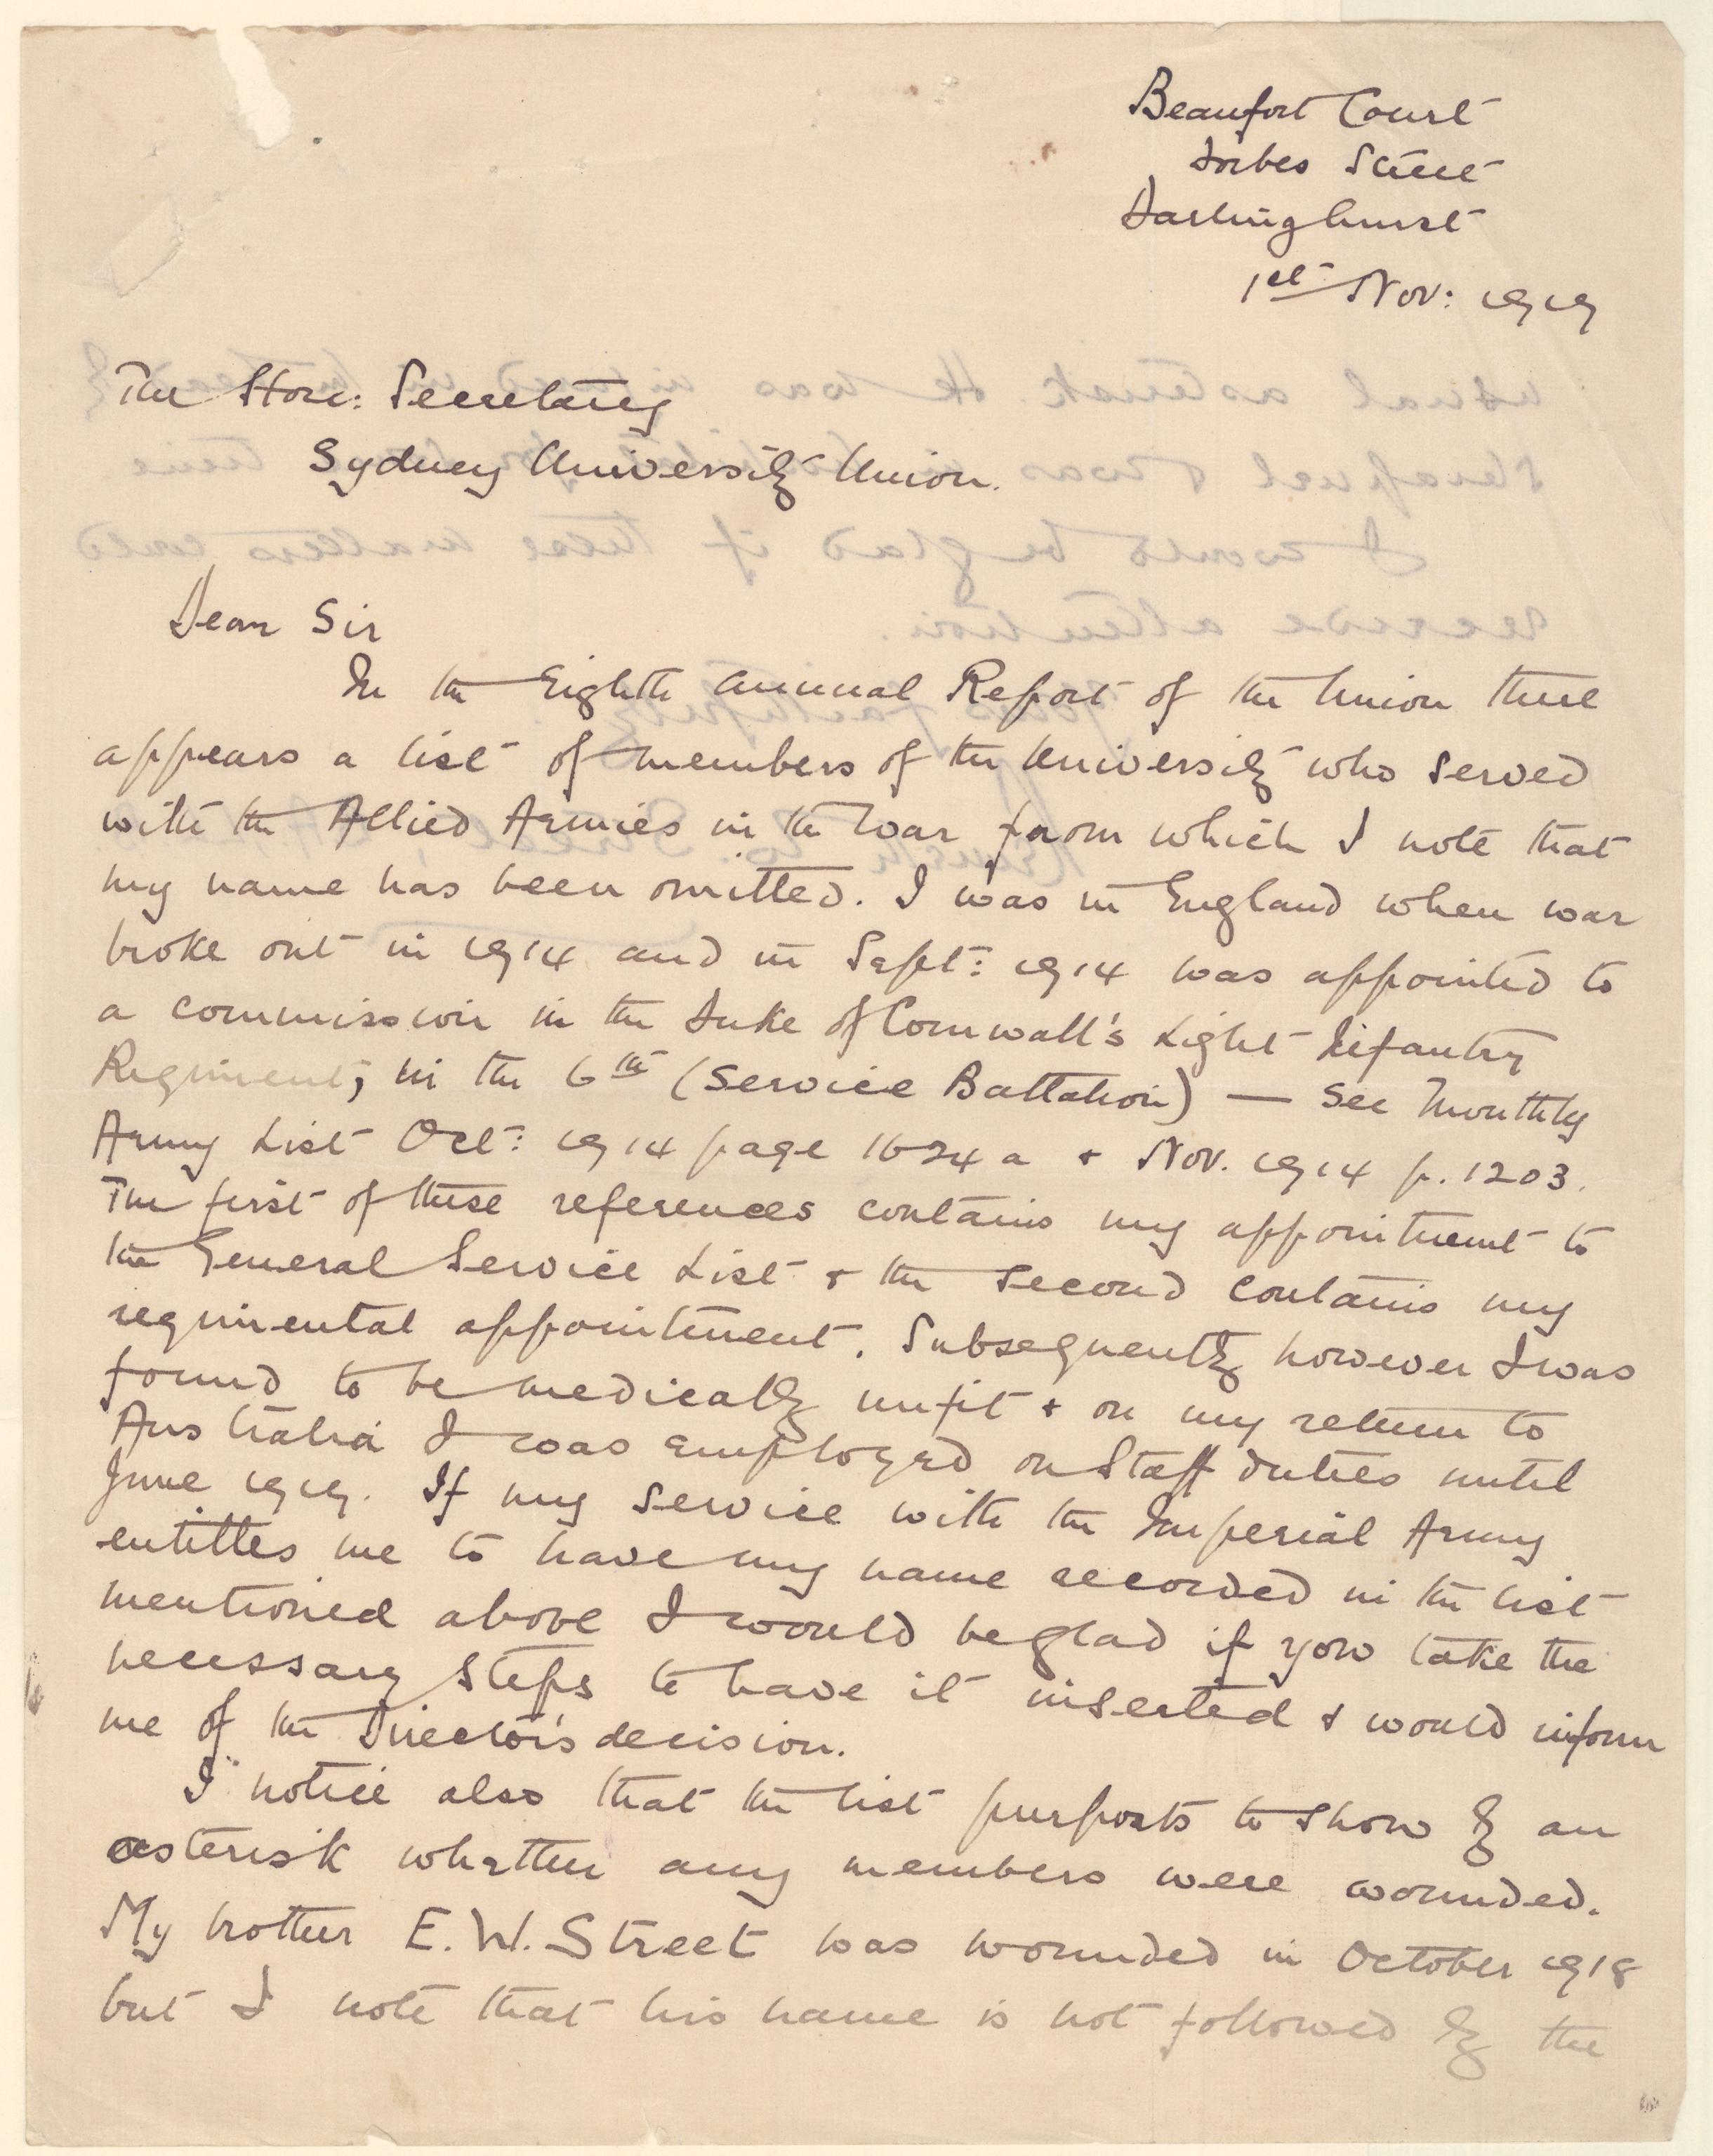 Beaufort Court
Forbes Street
Darlinghurst
1st Nov: 1919
The Hon: Secretary
Sydney University Union.
Dear Sir
In the Eighth Annual Report of the Union there
appears a list of members of the University who served
with the Allied Armies in the war from which I note that
my name has been omitted. I was in England when war
broke out in 1914 and in Sept: 1914 was appointed to
a commission in the Duke of Cornwall's Light Infantry
Regiment, in the 6th (Service Battalion) — see Monthly
Army List Oct: 1914 page 1624a + Nov. 1914 p. 1203.
The first of these references contains my appointment to
the General Service List + the second contains my
regimental appointment. Subsequently however I was
found to be medically unfit + on my return to
Australia I was employed on Staff duties until
June 1919. If my service with the Imperial Army
entitles me to have my name recorded in the list
mentioned above I would be glad if you take the
necessary steps to have it inserted & would inform
me of the Director's decision.
I notice also that the list purports to show by an
asterisk whether any members were wounded.
My brother E. W. Street was wounded in October 1918
but I note that his name is not followed by the